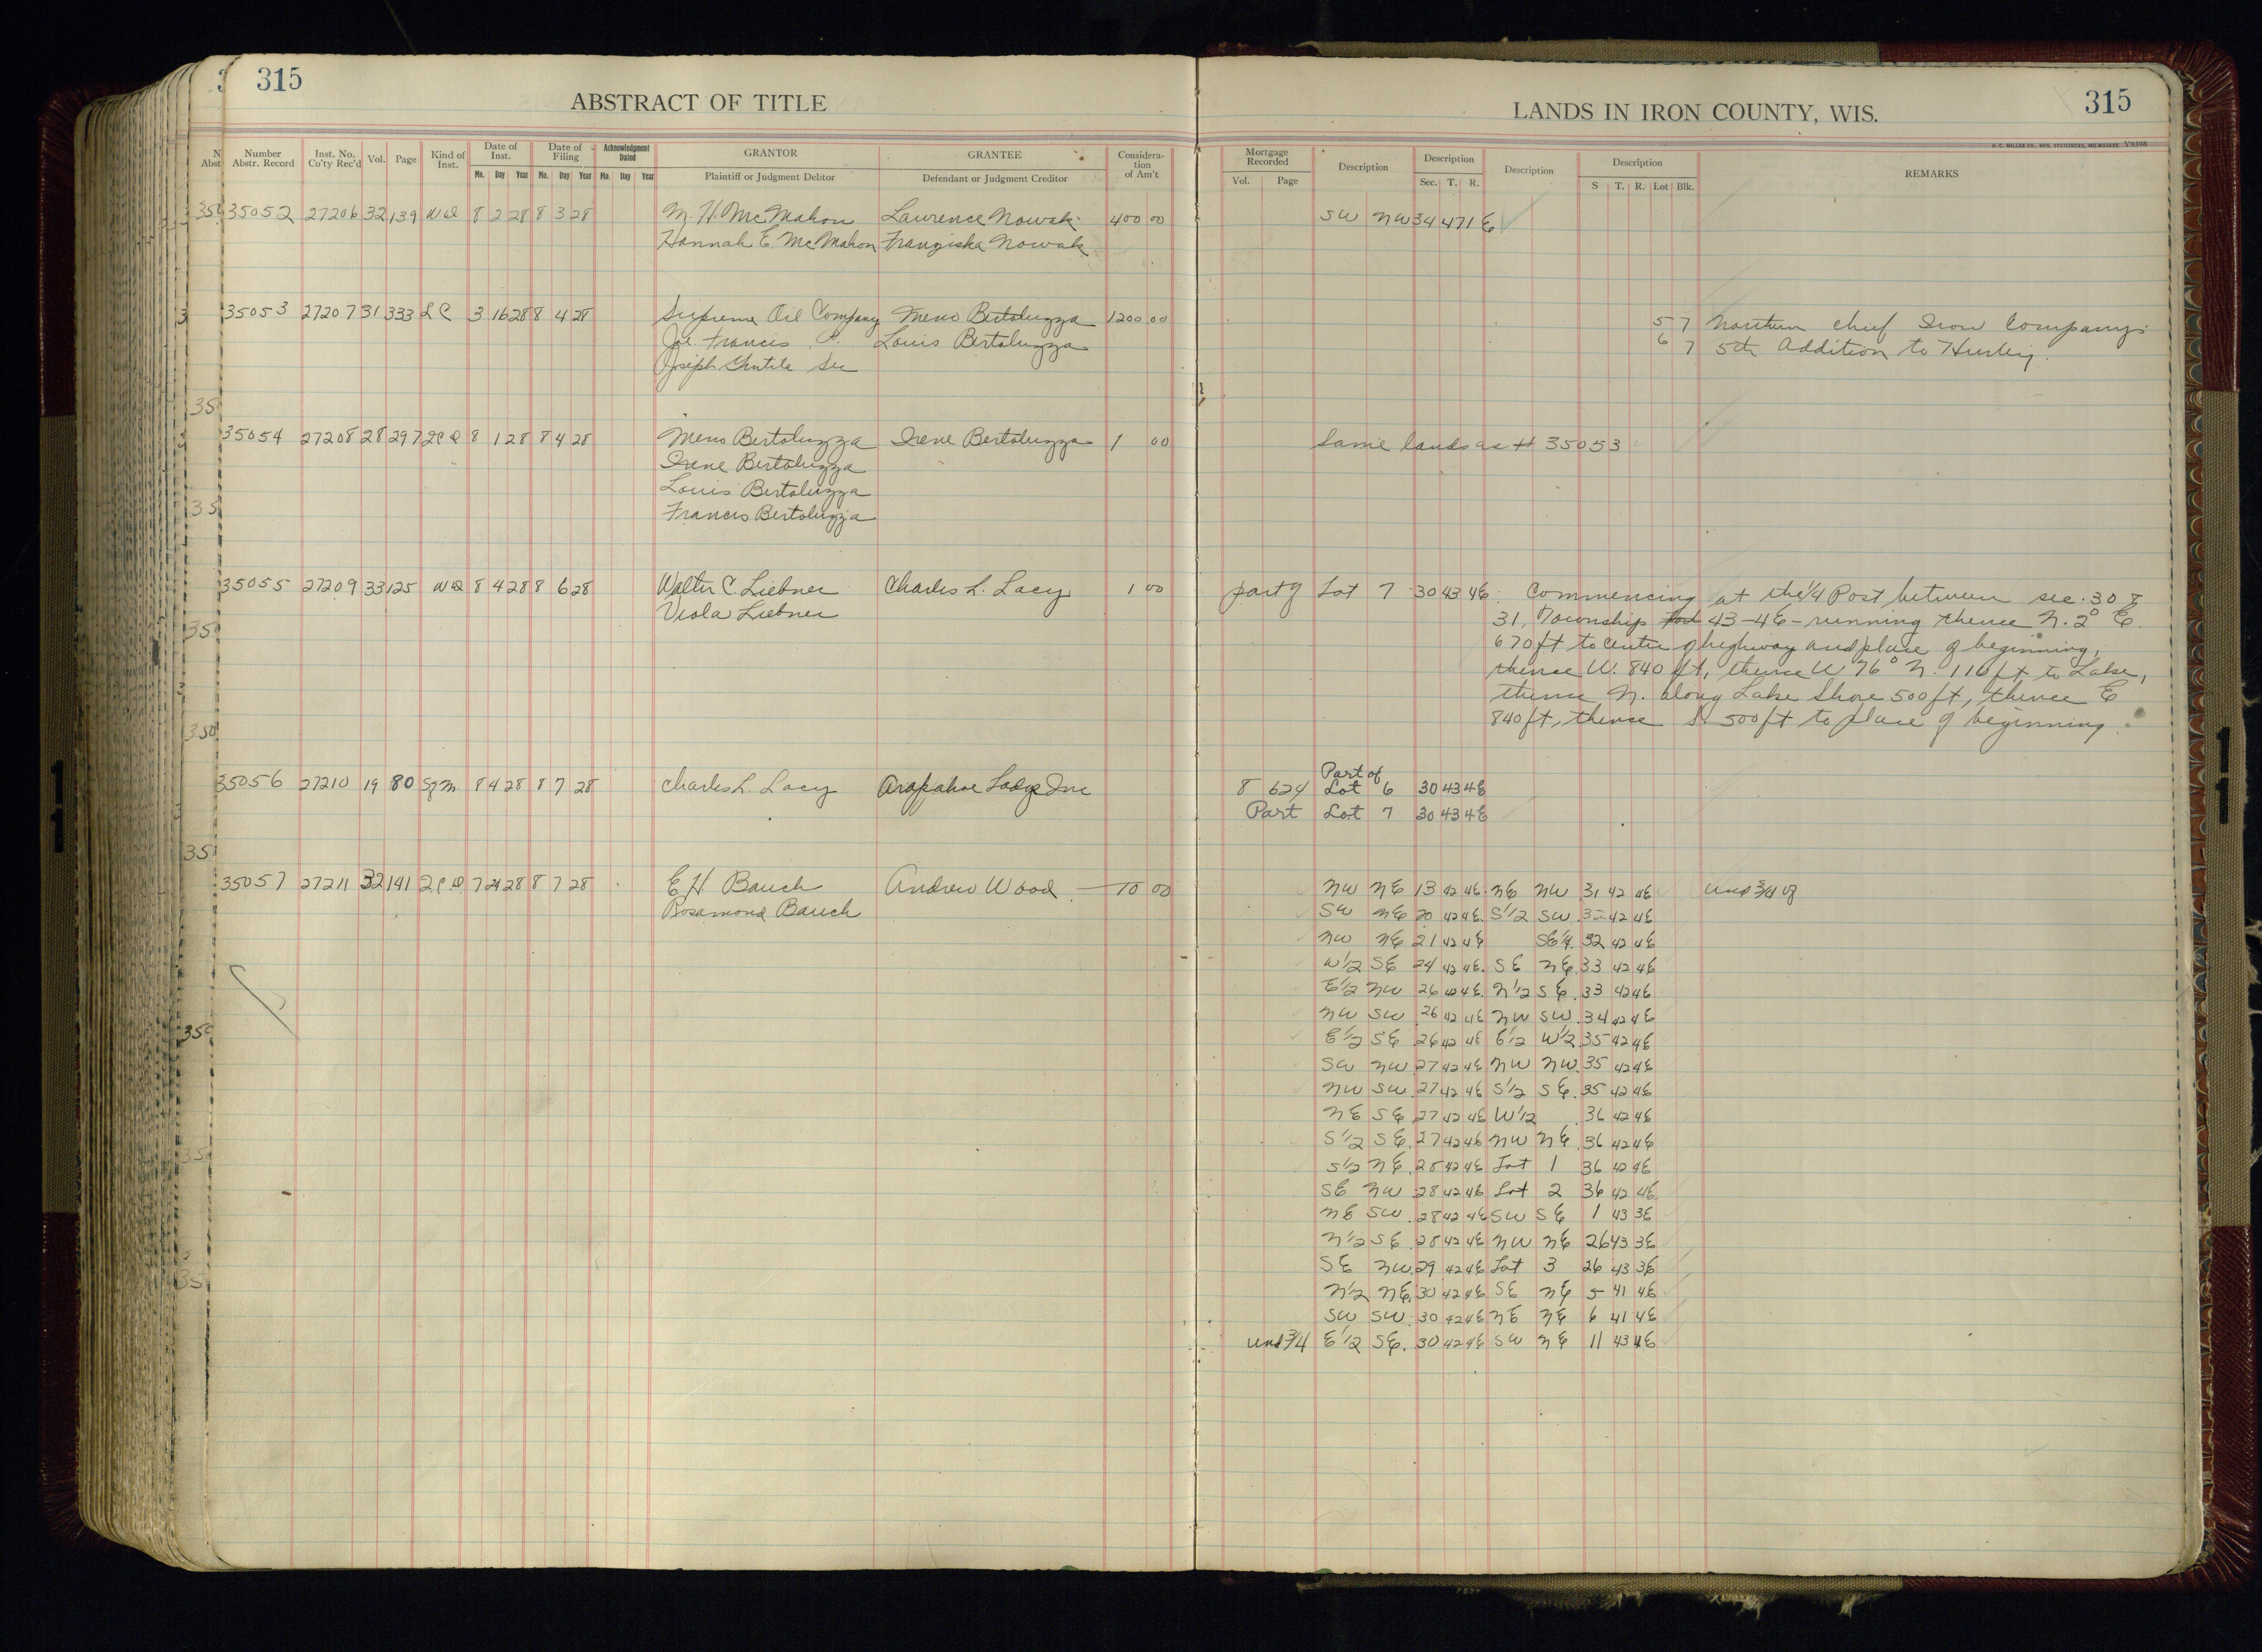 315
ABSTRACT OF TITLE
LANDS IN IRON COUNTY, WIS.
315
H. C. MILLER CO., MFG. STATIONERS, MILWAUKEE Y9398
Number Abstr. Record | Inst. No. Co'ty Rec'd | Vol. | Page | Kind of Inst. | Date of Inst. Mo. Day Year | Date of Filing Mo. Day Year | Acknowledgment Dated Mo. Day Year | GRANTOR Plaintiff or Judgment Debtor | GRANTEE Defendant or Judgment Creditor | Considera-tion of Am't | Mortgage Recorded Vol. Page | Description | Description Sec. T. R. | Description | Description S T. R. Lot Blk. | REMARKS
35052 27206 32 139 WD 8 2 28 8 3 28 M. H. McMahon Laurence Nowak 400 00 SW NW 34 47 1E
Hannah E. McMahon Franziska Nowak
35053 27207 31 333 LC 3 16 28 8 4 28 Supreme Oil Company Meno Bertoluzza 1200 00 5 7 Northern Chief Iron Company's
Joe Francis P. Louis Bertoluzza 6 7 5th Addition to Hurley.
Joseph Gentile Sec
35054 27208 28 297 QCD 8 1 28 8 4 28 Meno Bertoluzza Irene Bertoluzza 1 00 Same lands as # 35053
Irene Bertoluzza
Louis Bertoluzza
Francis Bertoluzza
35055 27209 33 125 WD 8 4 28 8 6 28 Walter C. Liebner Charles L. Lacy 1 00 part of Lot 7 30 43 4E Commencing at the 1/4 Post between sec. 30 &
Viola Liebner 31, Township 43-4E - running thence N. 2° E.
670 ft to centre of highway and place of beginning,
thence W. 840 ft, thence W 76° N. 110 ft to Lake,
thence N. along Lake Shore 500 ft, thence E
840 ft, thence S. 500 ft to place of beginning.
35056 27210 19 80 Sgm. 8 4 28 8 7 28 Charles L. Lacy Arapahoe Lodge Inc 8 624 Part of Lot 6 30 43 4E
Part Lot 7 30 43 4E
35057 27211 32 141 QCD 7 24 28 8 7 28 E H Bauch Andrew Wood 10 00 NW NE 13 42 4E NE NW 31 42 4E und 3/4 of
Rosamond Bauch SW NE 20 42 4E S1/2 SW 32 42 4E
NW NE 21 42 4E SE1/4 32 42 4E
W1/2 SE 24 42 4E SE NE 33 42 4E
E1/2 NW 26 42 4E N1/2 SE 33 42 4E
NW SW 26 42 4E NW SW 34 42 4E
E1/2 SE 26 42 4E E1/2 W1/2 35 42 4E
SW NW 27 42 4E NW NW 35 42 4E
NW SW 27 42 4E S1/2 SE 35 42 4E
NE SE 27 42 4E W1/2 36 42 4E
S1/2 SE 27 42 4E NW NE 36 42 4E
S1/2 NE 28 42 4E Lot 1 36 42 4E
SE NW 28 42 4E Lot 2 36 42 4E
NE SW 28 42 4E SW SE 1 43 3E
N1/2 SE 28 42 4E NW NE 26 43 3E
SE NW 29 42 4E Lot 3 26 43 3E
N1/2 NE 30 42 4E SE NE 5 41 4E
SW SW 30 42 4E NE NE 6 41 4E
und 3/4 E1/2 SE 30 42 4E SW NE 11 43 4E